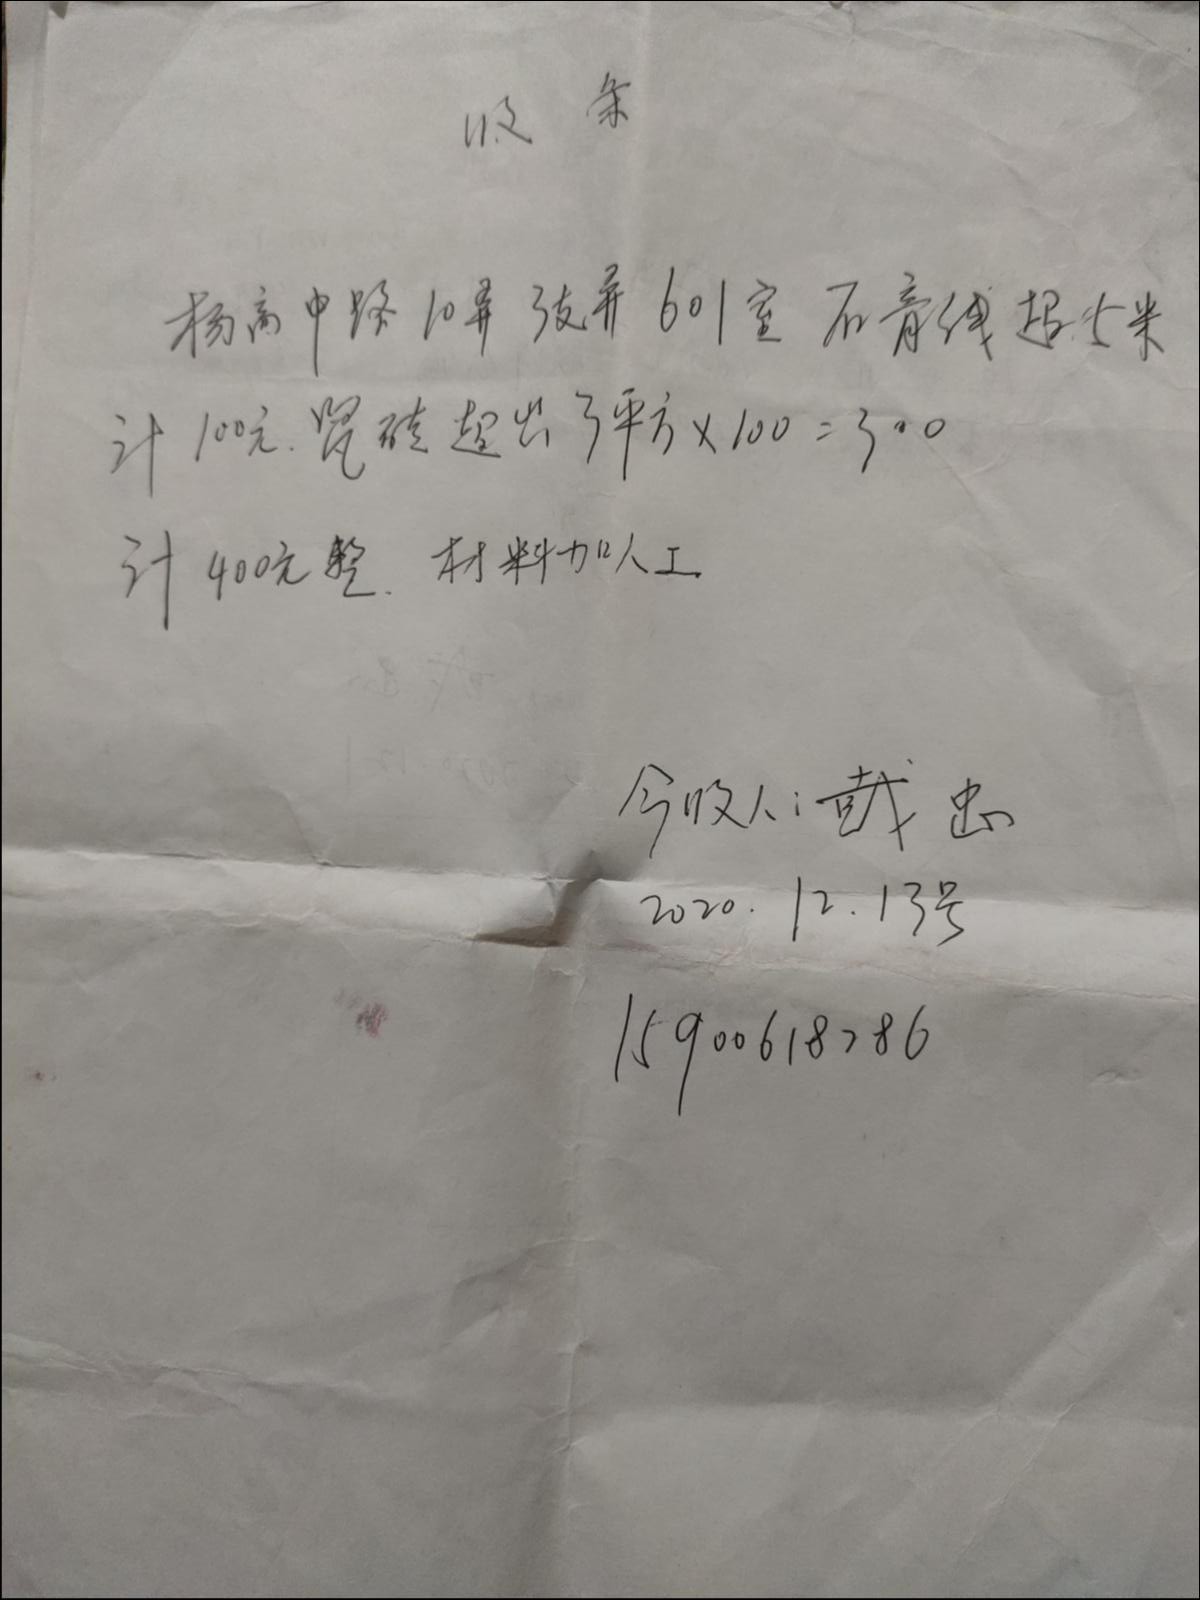 收条
杨高中路10弄3支弄601室 石膏线超5米
计100元.瓷砖超出3平方×100=300
计400元整. 材料加人工
今收人:戴忠
2020.12.13号
15900618286